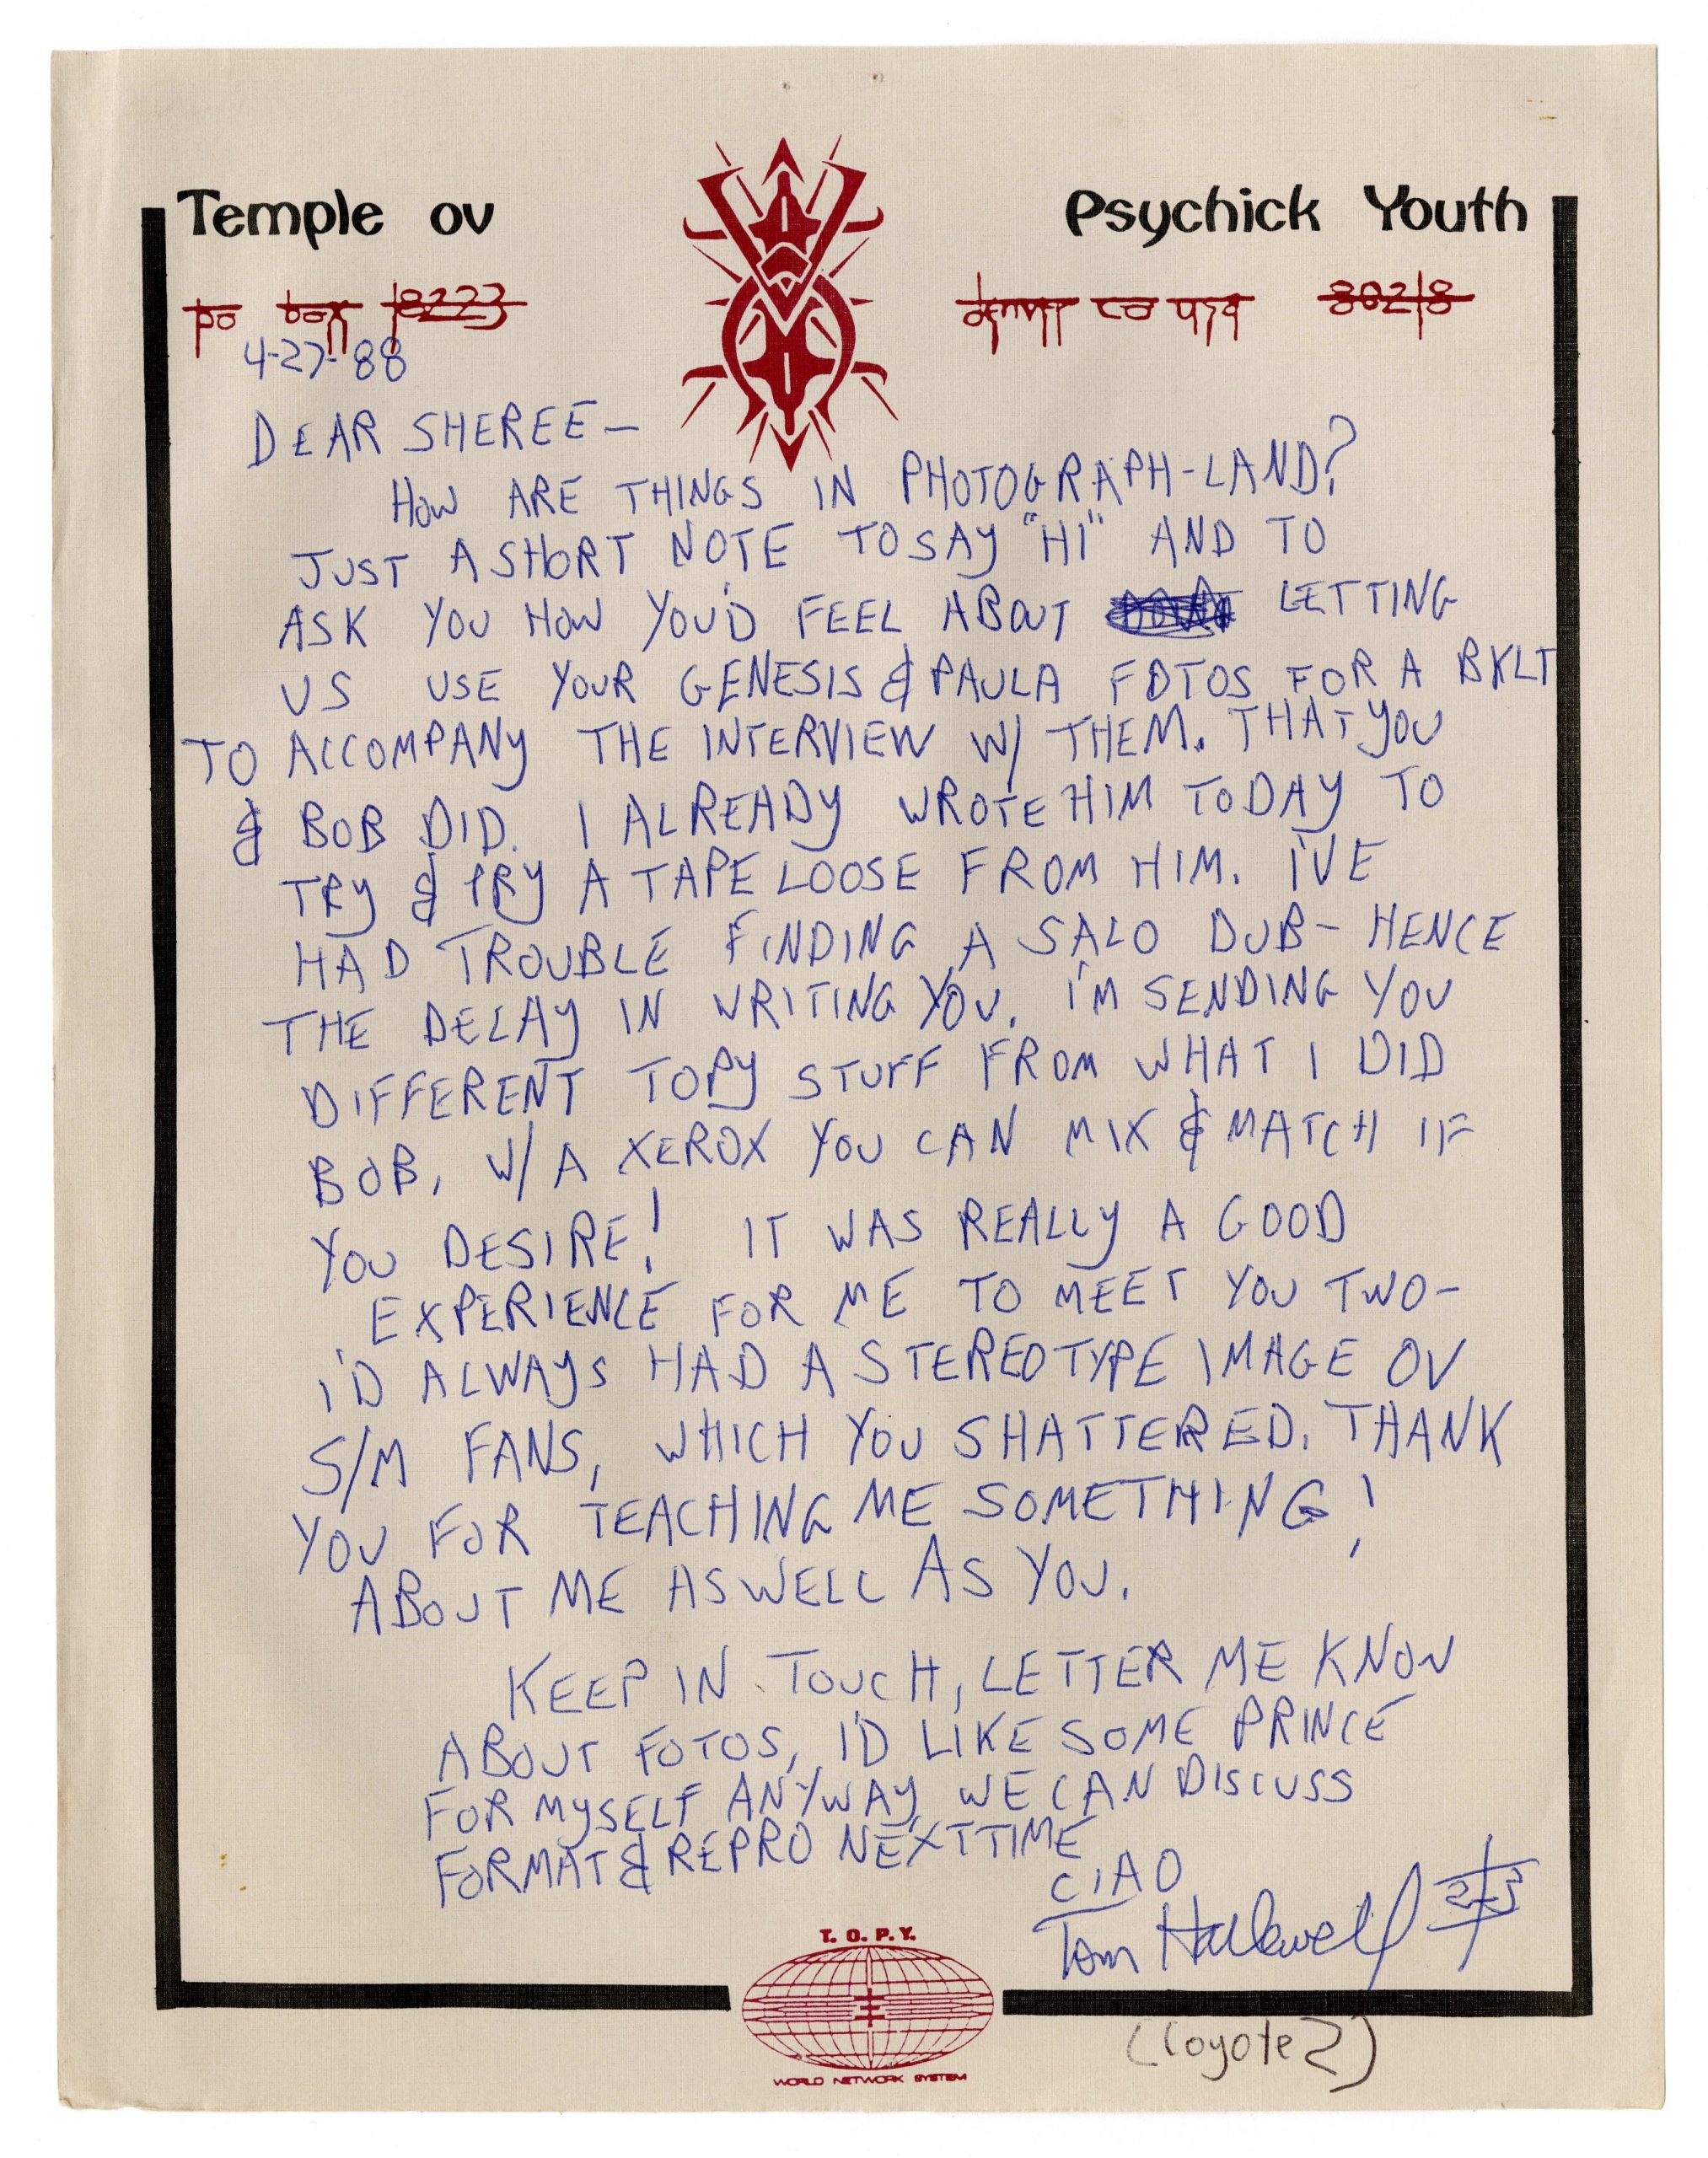 Temple ov Psychick Youth
po box 18223 denver co usa 80218
4-27-88
DEAR SHEREE-
HOW ARE THINGS IN PHOTOGRAPH-LAND?
JUST A SHORT NOTE TO SAY "HI" AND TO
ASK YOU HOW YOU'D FEEL ABOUT LETTING
US USE YOUR GENESIS & PAULA FOTOS FOR A BKLT
TO ACCOMPANY THE INTERVIEW W/ THEM. THAT YOU
& BOB DID. I ALREADY WROTE HIM TODAY TO
TRY & PRY A TAPE LOOSE FROM HIM. I'VE
HAD TROUBLE FINDING A SALO DUB- HENCE
THE DELAY IN WRITING YOU. I'M SENDING YOU
DIFFERENT TOPY STUFF FROM WHAT I DID
BOB, W/ A XEROX YOU CAN MIX & MATCH IF
YOU DESIRE! IT WAS REALLY A GOOD
EXPERIENCE FOR ME TO MEET YOU TWO-
I'D ALWAYS HAD A STEREOTYPE IMAGE OV
S/M FANS, WHICH YOU SHATTERED. THANK
YOU FOR TEACHING ME SOMETHING!
ABOUT ME AS WELL AS YOU.
KEEP IN TOUCH, LETTER ME KNOW
ABOUT FOTOS, I'D LIKE SOME PRINCE
FOR MYSELF ANYWAY, WE CAN DISCUSS
FORMAT & REPRO NEXT TIME
CIAO
Tom Hallewell 23
T.O.P.Y.
WORLD NETWORK SYSTEM
(Coyote 2)